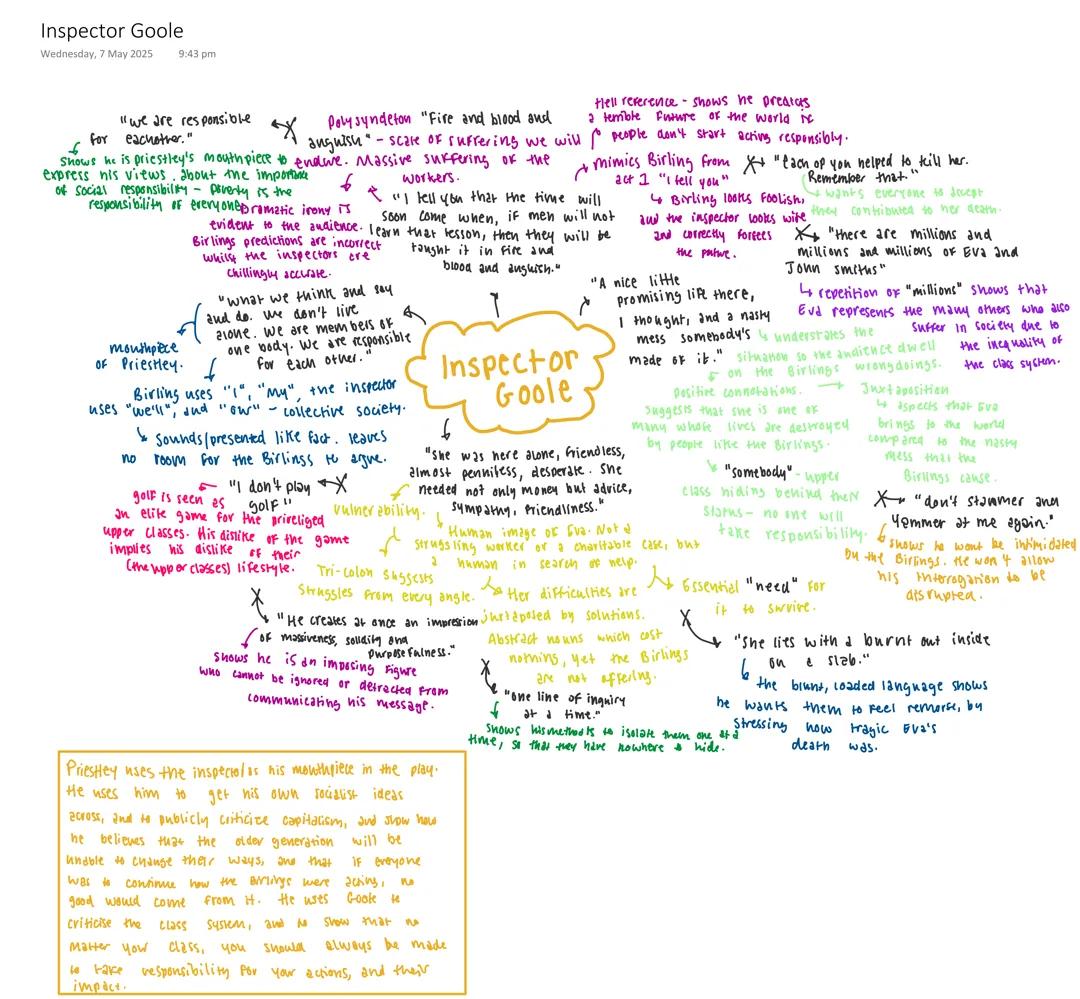 Inspector Goole
Wednesday, 7 May 2025 9:43 pm
"we are responsible
for eachother."
Shows he is priestley's mouthpiece to
express his views about the importance
of social responsibility - Poverty is the
responsibility of everyone
Polysyndeton "Fire and blood and
anguish" - scale of suffering we will
endure. Massive suffering of the
workers.
Hell reference - shows he predicts
a terrible future of the world if
people don't start acting responsibly.
mimics Birling from
act 1 "I tell you"
Birling looks foolish,
and the inspector looks wise
and correctly forsees
the future.
"Each of you helped to kill her.
Remember that."
wants everyone to accept
they contributed to her death.
Dramatic irony is
evident to the audience.
Birlings predictions are incorrect
whilst the inspectors are
chillingly accurate.
"I tell you that the time will
soon come when, if men will not
learn that lesson, then they will be
taught it in fire and
blood and anguish."
"there are millions and
millions and millions of Eva and
John Smiths"
repetition of "millions" shows that
Eva represents the many others who also
suffer in society due to
the inequality of
the class system.
"What we think and say
and do. We don't live
alone. We are members of
one body. We are responsible
for each other."
mouthpiece
of Priestley.
Birling uses "I", "my", the inspector
uses "we'll", and "our" - collective society.
Sounds/presented like fact. leaves
no room for the Birlings to argue.
Inspector
Goole
"A nice little
promising life there,
I thought, and a nasty
mess somebody's
made of it."
understates the
situation so the audience dwell
on the Birlings wrongdoings.
Positive connotations.
Suggests that she is one of
many whose lives are destroyed
by people like the Birlings.
Juxtaposition
aspects that Eva
brings to the world
compared to the nasty
mess that the
Birlings cause.
"somebody" - upper
class hiding behind their
status - no one will
take responsibility.
"I don't play
golf"
golf is seen as
an elite game for the priveliged
upper classes. His dislike of the game
implies his dislike of their
(the upper classes) lifestyle.
"She was here alone, friendless,
almost penniless, desperate. She
needed not only money but advice,
sympathy, friendliness."
vulnerability.
Human image of Eva. Not a
struggling worker or a charitable case, but
a human in search of help.
Tri-colon suggests
struggles from every angle.
Her difficulties are
juxtaposed by solutions.
Abstract nouns which cost
nothing, yet the Birlings
are not offering.
Essential "need" for
it to survive.
"don't stammer and
yammer at me again."
shows he wont be intimidated
by the Birlings. He won't allow
his interrogation to be
disrupted.
"He creates at once an impression
of massiveness, solidity and
purposefulness."
Shows he is an imposing figure
who cannot be ignored or detracted from
communicating his message.
"one line of inquiry
at a time."
Shows his method is to isolate them one at a
time, so that they have nowhere to hide.
"She lies with a burnt out inside
on a slab."
the blunt, loaded language shows
he wants them to feel remorse, by
stressing how tragic Eva's
death was.
Priestley uses the inspector as his mouthpiece in the play.
He uses him to get his own socialist ideas
across, and to publicly criticize capitalism, and show how
he believes that the older generation will be
unable to change their ways, and that if everyone
was to continue how the Birlings were acting, no
good would come from it. He uses Goole to
criticise the class system, and to show that no
matter your class, you should always be made
to take responsibility for your actions, and their
impact.